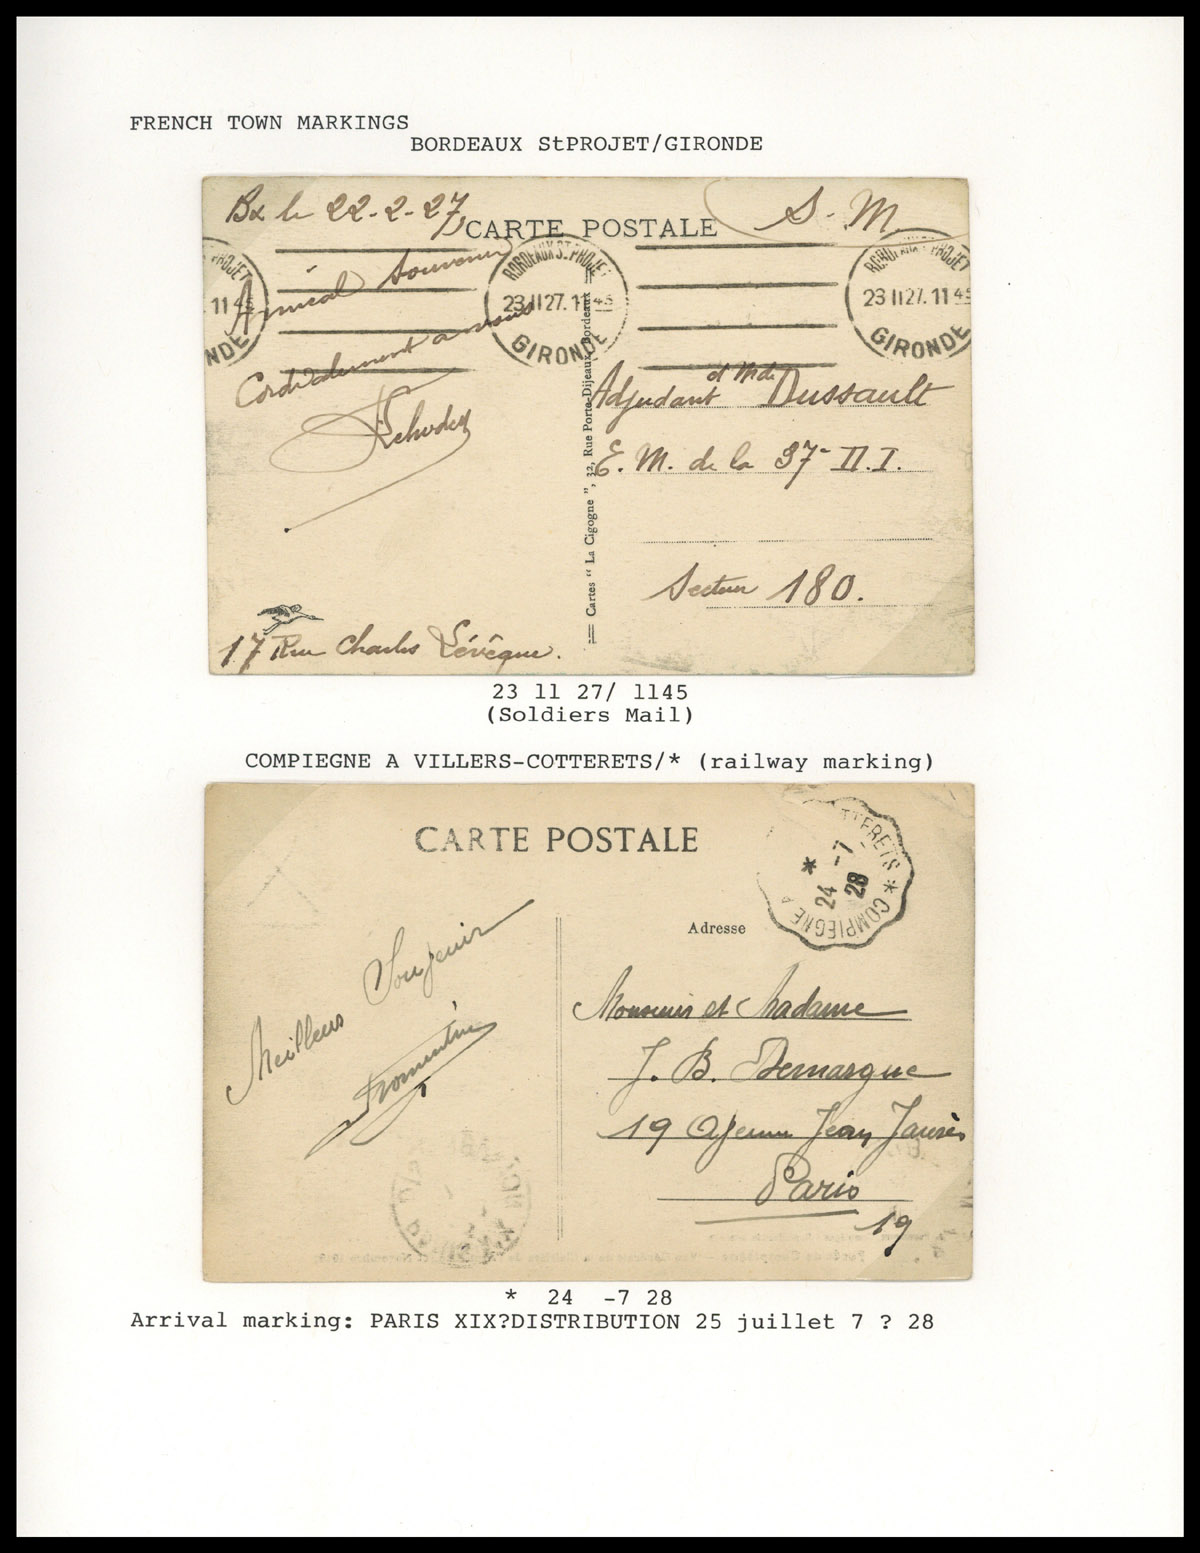 FRENCH TOWN MARKINGS
BORDEAUX StPROJET/GIRONDE
Bx le 22-2-27
CARTE POSTALE
S. M
PROJET
11 45
NDE
BORDEAUX ST PROJET
23 II 27. 11 45
GIRONDE
BORDEAUX ST PROJET
23 II 27. 11 45
GIRONDE
Amical Souvenir
Cordialement a vous
Adjudant et Mde Dussault
E. M. de la 37e D.I.
Secteur 180.
Cartes " La Cigogne ", 32, Rue Porte-Dijeaux, Bordeaux
17 Rue Charles Lévêque.
23 11 27/ 1145
(Soldiers Mail)
COMPIEGNE A VILLERS-COTTERETS/* (railway marking)
CARTE POSTALE
TTERETS * COMPIEGNE A
* 24 -7 28
Adresse
Meilleur Souvenir
Monsieur et Madame
J. B. Demargue
19 Avenue Jean Jaurès
Paris
19
* 24 -7 28
Arrival marking: PARIS XIX?DISTRIBUTION 25 juillet 7 ? 28